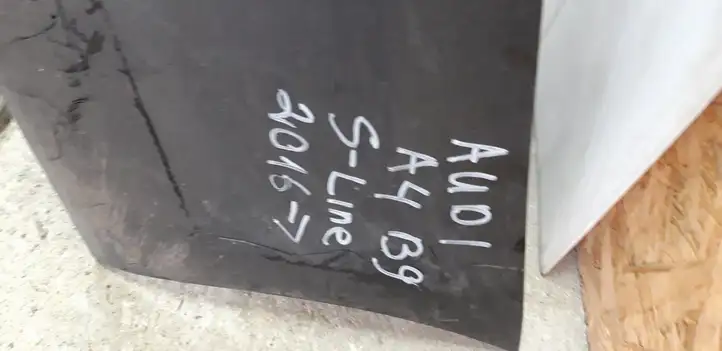 AUDI
A4 B9
S-Line
2016->